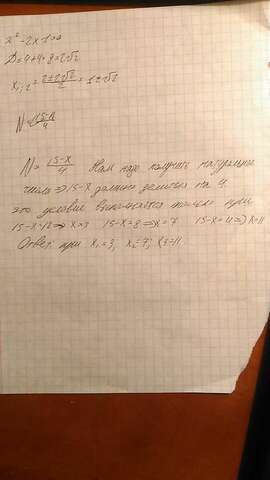 x² - 2x - 1 = 0
D = 4 + 4 = 8 = 2√2
x₁,₂ = (2±2√2)/2 = 1±√2
N = (15-x)/4
N = (15-x)/4 Нам надо получить натуральное
число => 15-x должно делиться на 4.
это условие выполняется только при
15-x=12 => x=3 15-x=8 => x=7 15-x=4 => x=11
Ответ: при x₁=3, x₂=7, x₃=11